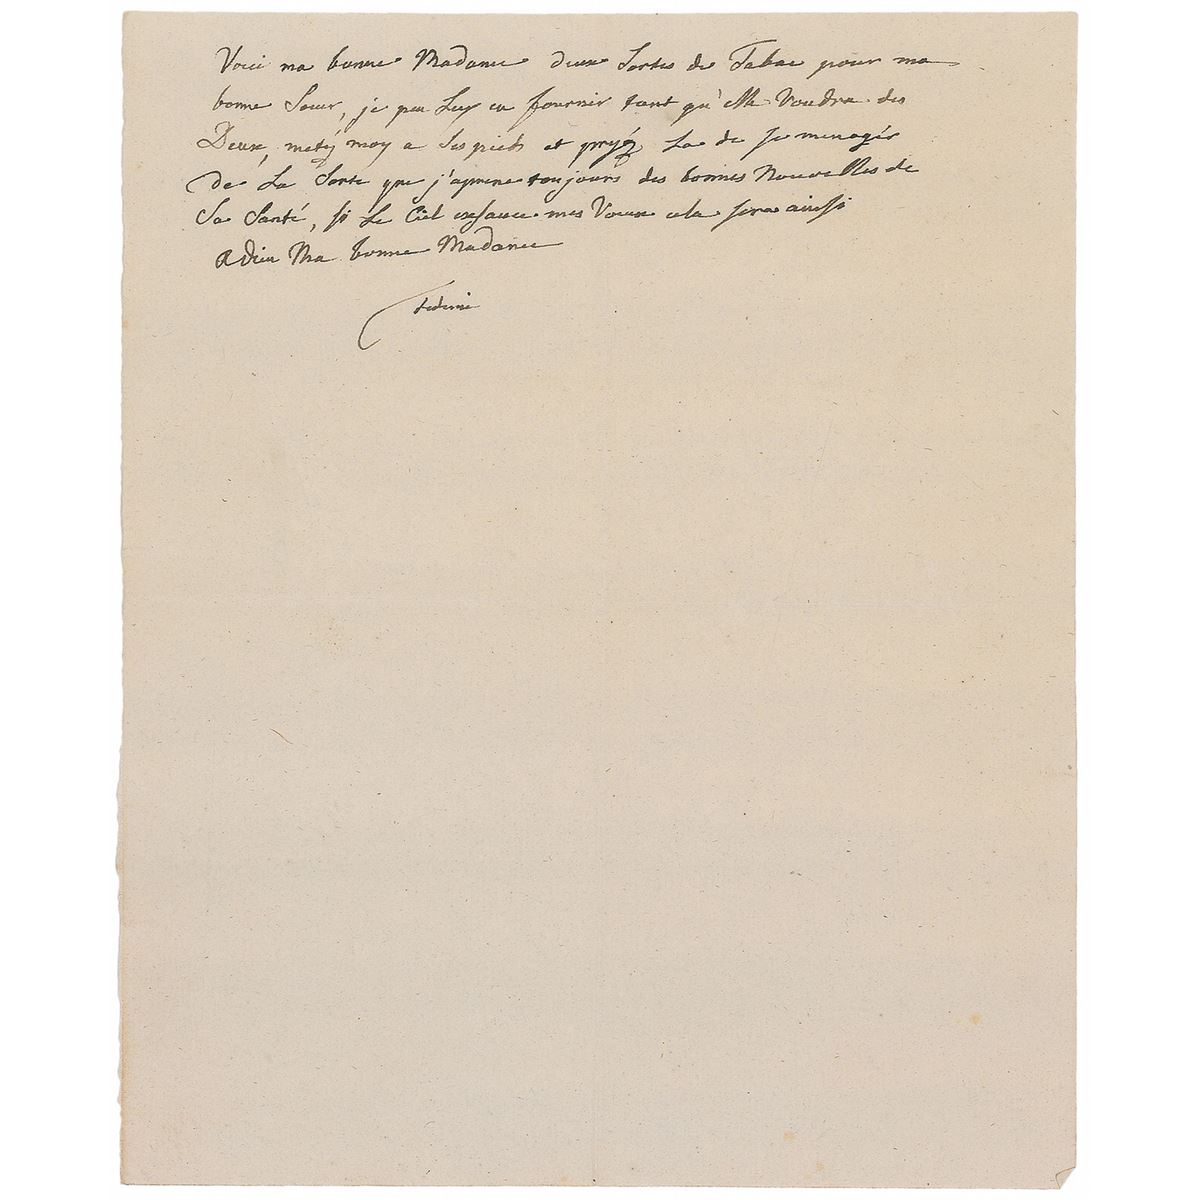 Voici ma bonne Madame deux Sortes de Tabac pour ma
bonne Sœur, je peu Luy en fournir tant qu'elle Voudra des
Deux, metéz moy a Ses pieds et pryéz La de se menagér
de La Sorte que j'aprene toujours des bonnes Nouvelles de
Sa Santé, si Le Ciel exsauce mes Vœux cela sera ainsi
adieu Ma bonne Madame
Federic